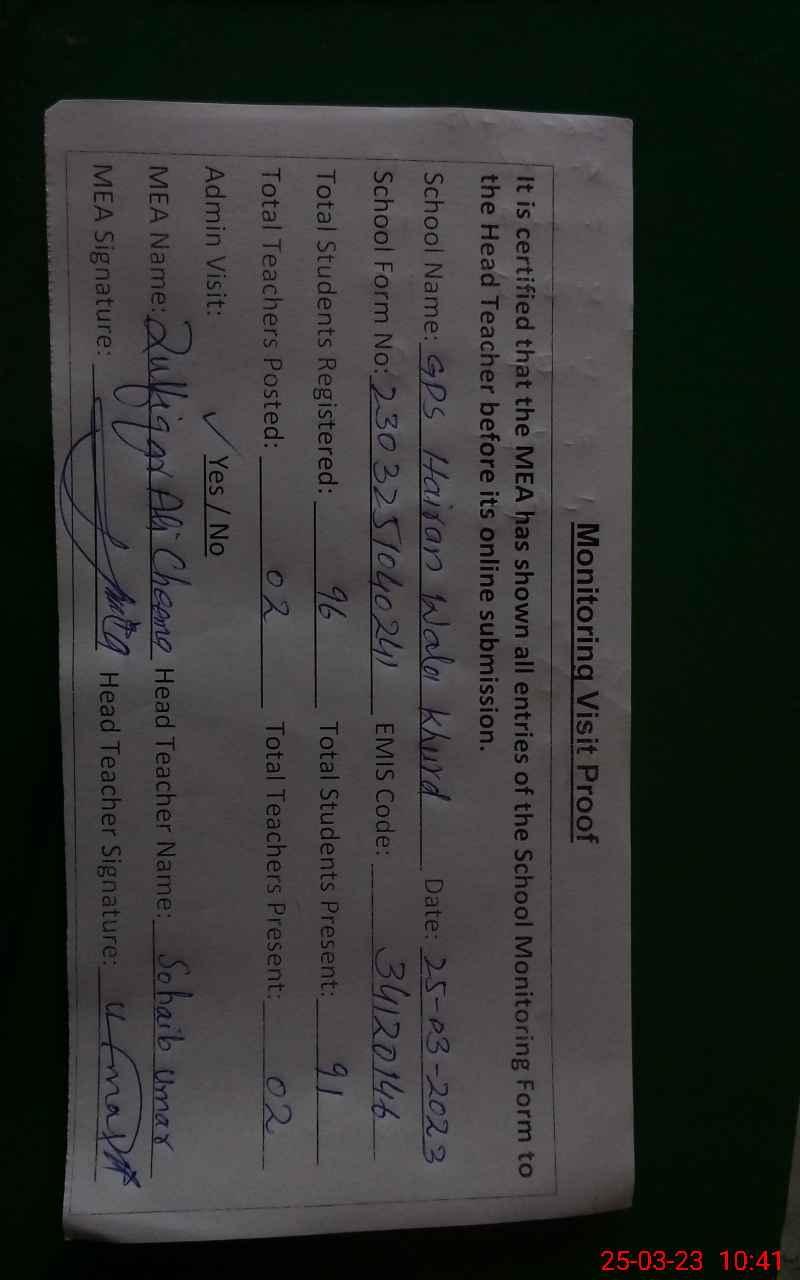 Monitoring Visit Proof
It is certified that the MEA has shown all entries of the School Monitoring Form to
the Head Teacher before its online submission.
School Name: GPS Hairan Wala Khurd Date: 25-03-2023
School Form No: 2303251040241 EMIS Code: 34120146
Total Students Registered: 96 Total Students Present: 91
Total Teachers Posted: 02 Total Teachers Present: 02
Admin Visit: ✓ Yes / No
MEA Name: Zulfiqar Ali Cheema Head Teacher Name: Sohaib Umar
MEA Signature: Head Teacher Signature: Umar
25-03-23 10:41